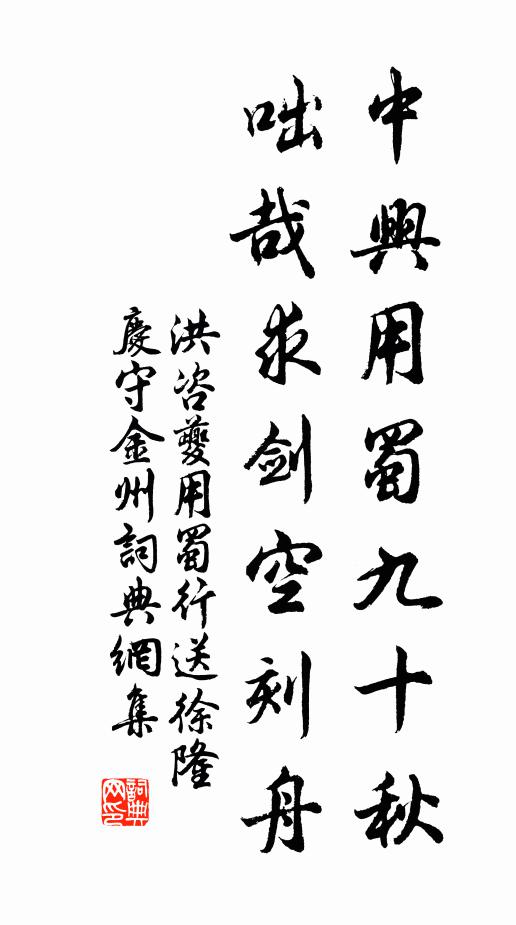 中興用蜀九十秋
咄哉求劍空刻舟
洪咨夔用蜀行送徐隆
慶守金州詞典網集
詞典
网印